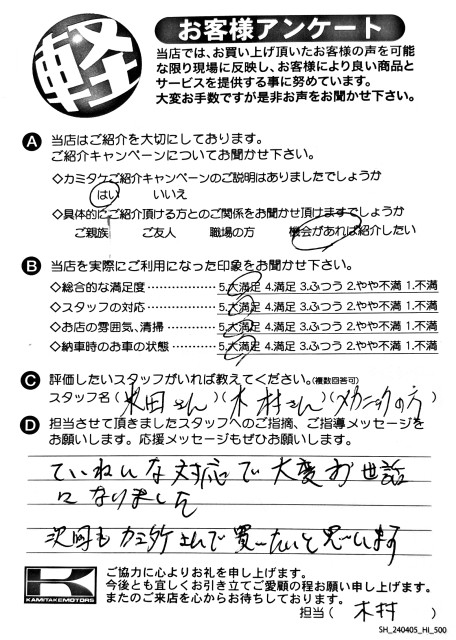 軽
お客様アンケート
当店では、お買い上げ頂いたお客様の声を可能
な限り現場に反映し、お客様により良い商品と
サービスを提供する事に努めています。
大変お手数ですが是非お声をお聞かせ下さい。
A 当店はご紹介を大切にしております。
ご紹介キャンペーンについてお聞かせ下さい。
◇カミタケご紹介キャンペーンのご説明はありましたでしょうか
はい いいえ
◇具体的にご紹介頂ける方とのご関係をお聞かせ頂けますでしょうか
ご親族 ご友人 職場の方 機会があれば紹介したい
B 当店を実際にご利用になった印象をお聞かせ下さい。
◇総合的な満足度……………5.大満足 4.満足 3.ふつう 2.やや不満 1.不満
◇スタッフの対応……………5.大満足 4.満足 3.ふつう 2.やや不満 1.不満
◇お店の雰囲気、清掃…………5.大満足 4.満足 3.ふつう 2.やや不満 1.不満
◇納車時のお車の状態…………5.大満足 4.満足 3.ふつう 2.やや不満 1.不満
C 評価したいスタッフがいれば教えてください。(複数回答可)
スタッフ名(米田さん)(木村さん)(メカニックの方)
D 担当させて頂きましたスタッフへのご指摘、ご指導メッセージを
お願いします。応援メッセージもぜひお願いします。
ていねいな対応で大変お世話
になりました
次回もカミタケさんで買いたいと思います
K
KAMITAKE MOTORS
ご協力に心よりお礼を申し上げます。
今後とも宜しくお引き立てご愛顧の程お願い申し上げます。
またのご来店を心からお待ちしております。
担当(木村)
SH_240405_Hi_500